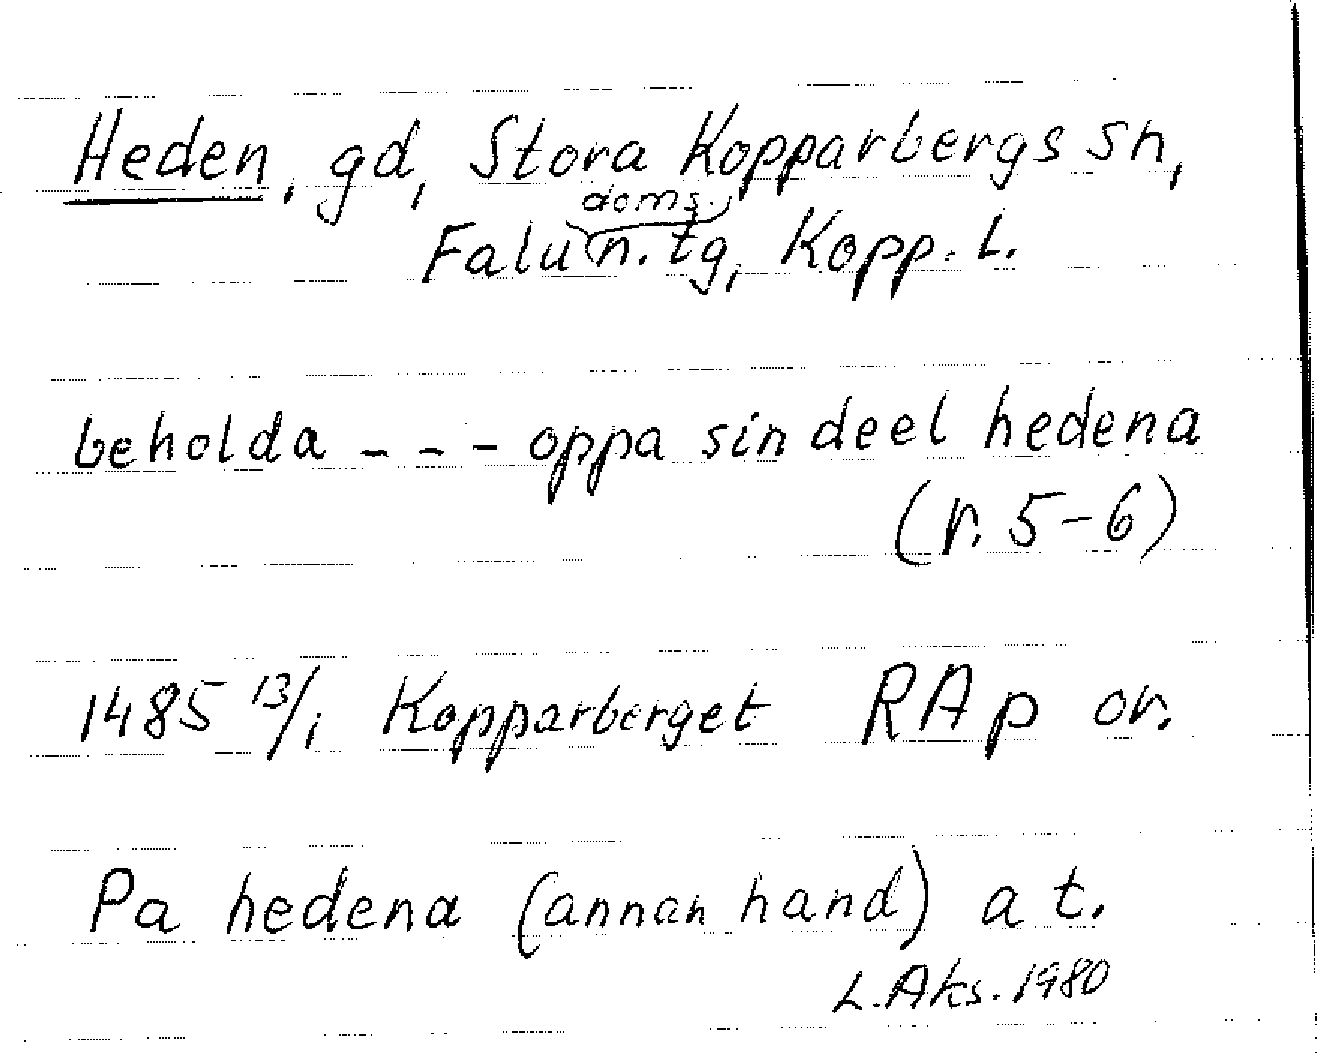 Heden, gd, Stora Kopparbergs sn,
doms.
Falu n. tg, Kopp. l.
beholda - - - oppa sin deel hedena
(r. 5-6)
1485 13/1 Kopparberget RAp or.
Pa hedena (annan hand) a t.
L. Aks. 1980